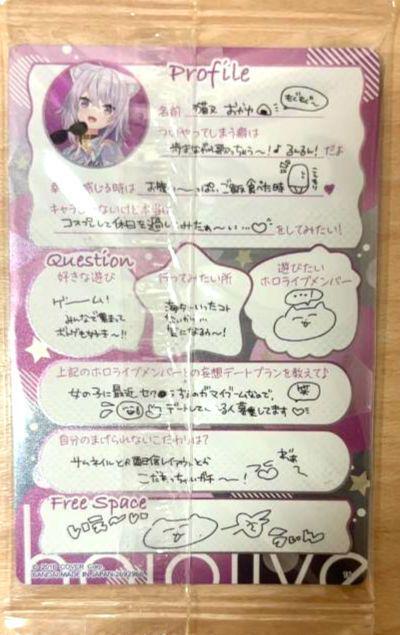 Profile
名前 猫又 おかゆ
もぐもぐ〜
ついやってしまう癖は
歩きながら歌っちゃう〜!♪ るんるん! だよ
幸せを感じる時は お腹い〜っぱいご飯食べた時 ♥
キャラじゃないけど本当は
コスプレして休日を過してみたぁ〜い…♡ をしてみたい!
Question
好きな遊び
ゲーム!
みんなで集まって
ボドゲも好き〜!!
行ってみたい所
海外いったコト
ないから…
気になるわ〜!
遊びたい
ホロライブメンバー
上記のホロライブメンバーとの妄想デートプランを教えて♪
女の子に最近
ゲームなので、
笑
デートしてくれる人募集してます♡
自分のまげられないこだわりは?
サムネイルとか配信レイアウトとか
こだわっちゃいがち〜!
Free Space
いえ〜い
hololive
© 2016 COVER Corp.
BANDAI MADE IN JAPAN